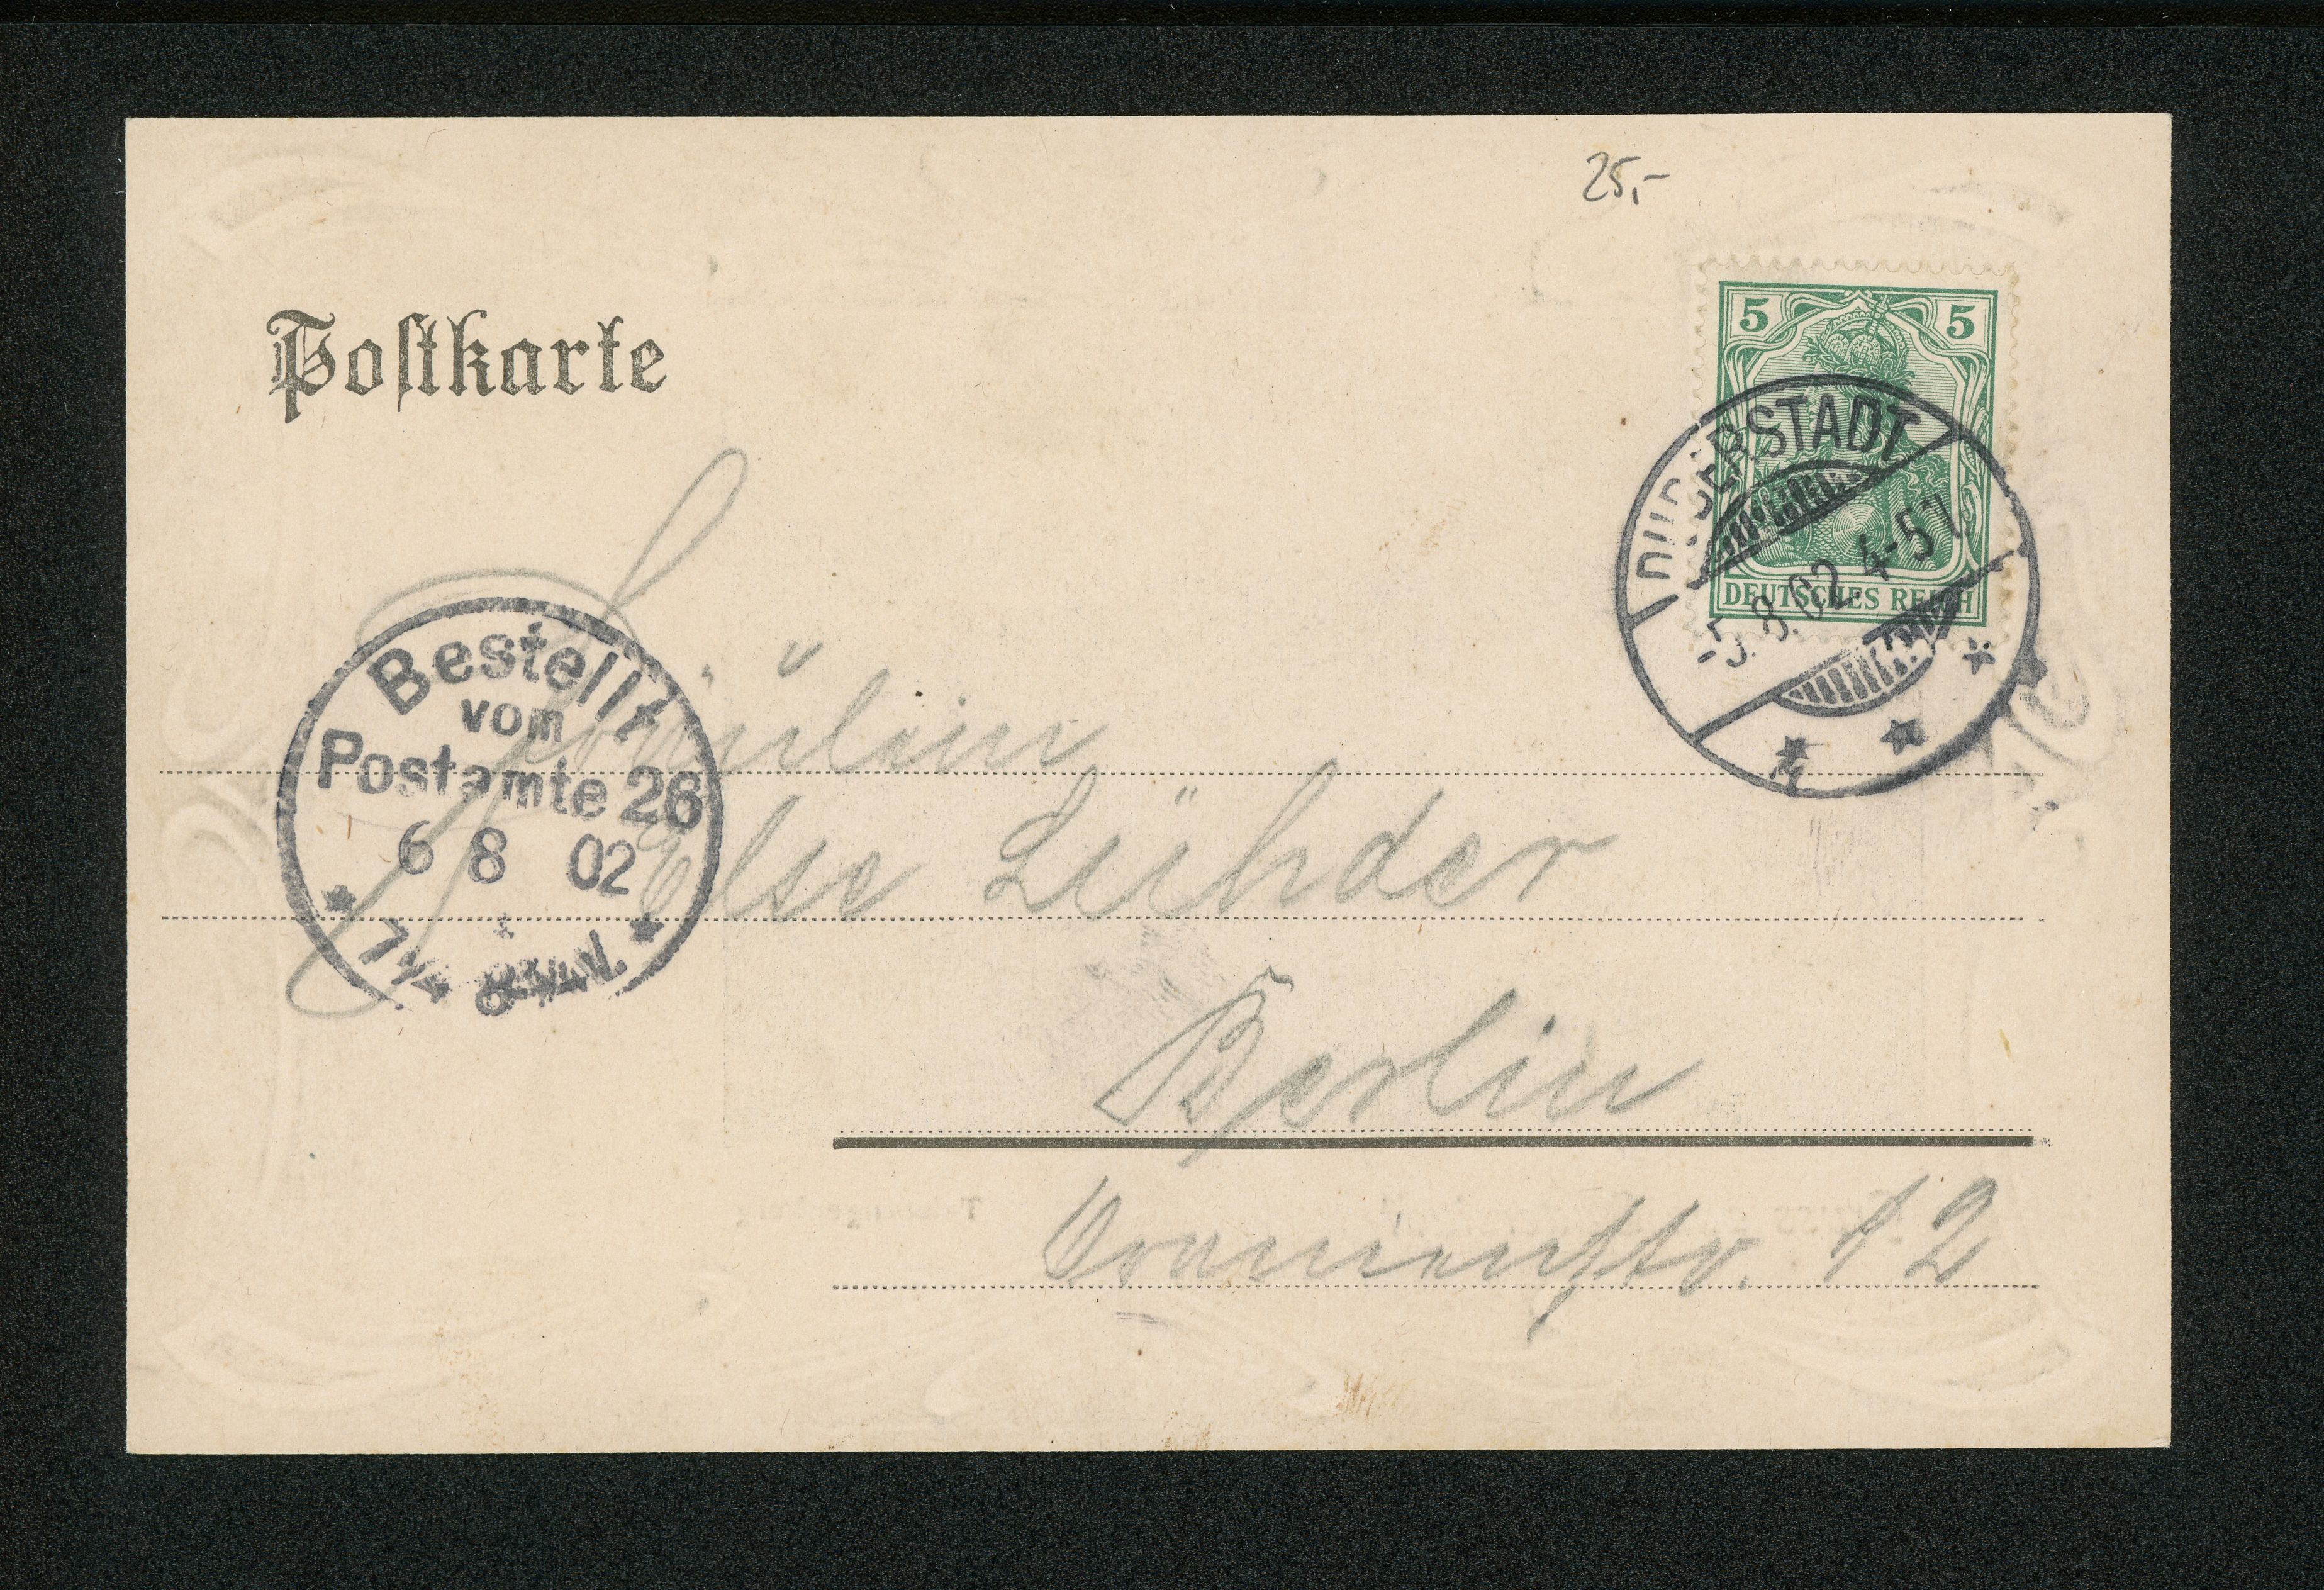 25,-
Postkarte
5 5
DEUTSCHES REICH
DUDERSTADT
-5.8.02 4-5N
Bestellt
vom
Postamte 26
6 8 02
7¼
Fräulein
Else Lühder
Berlin
Oranienstr. 12